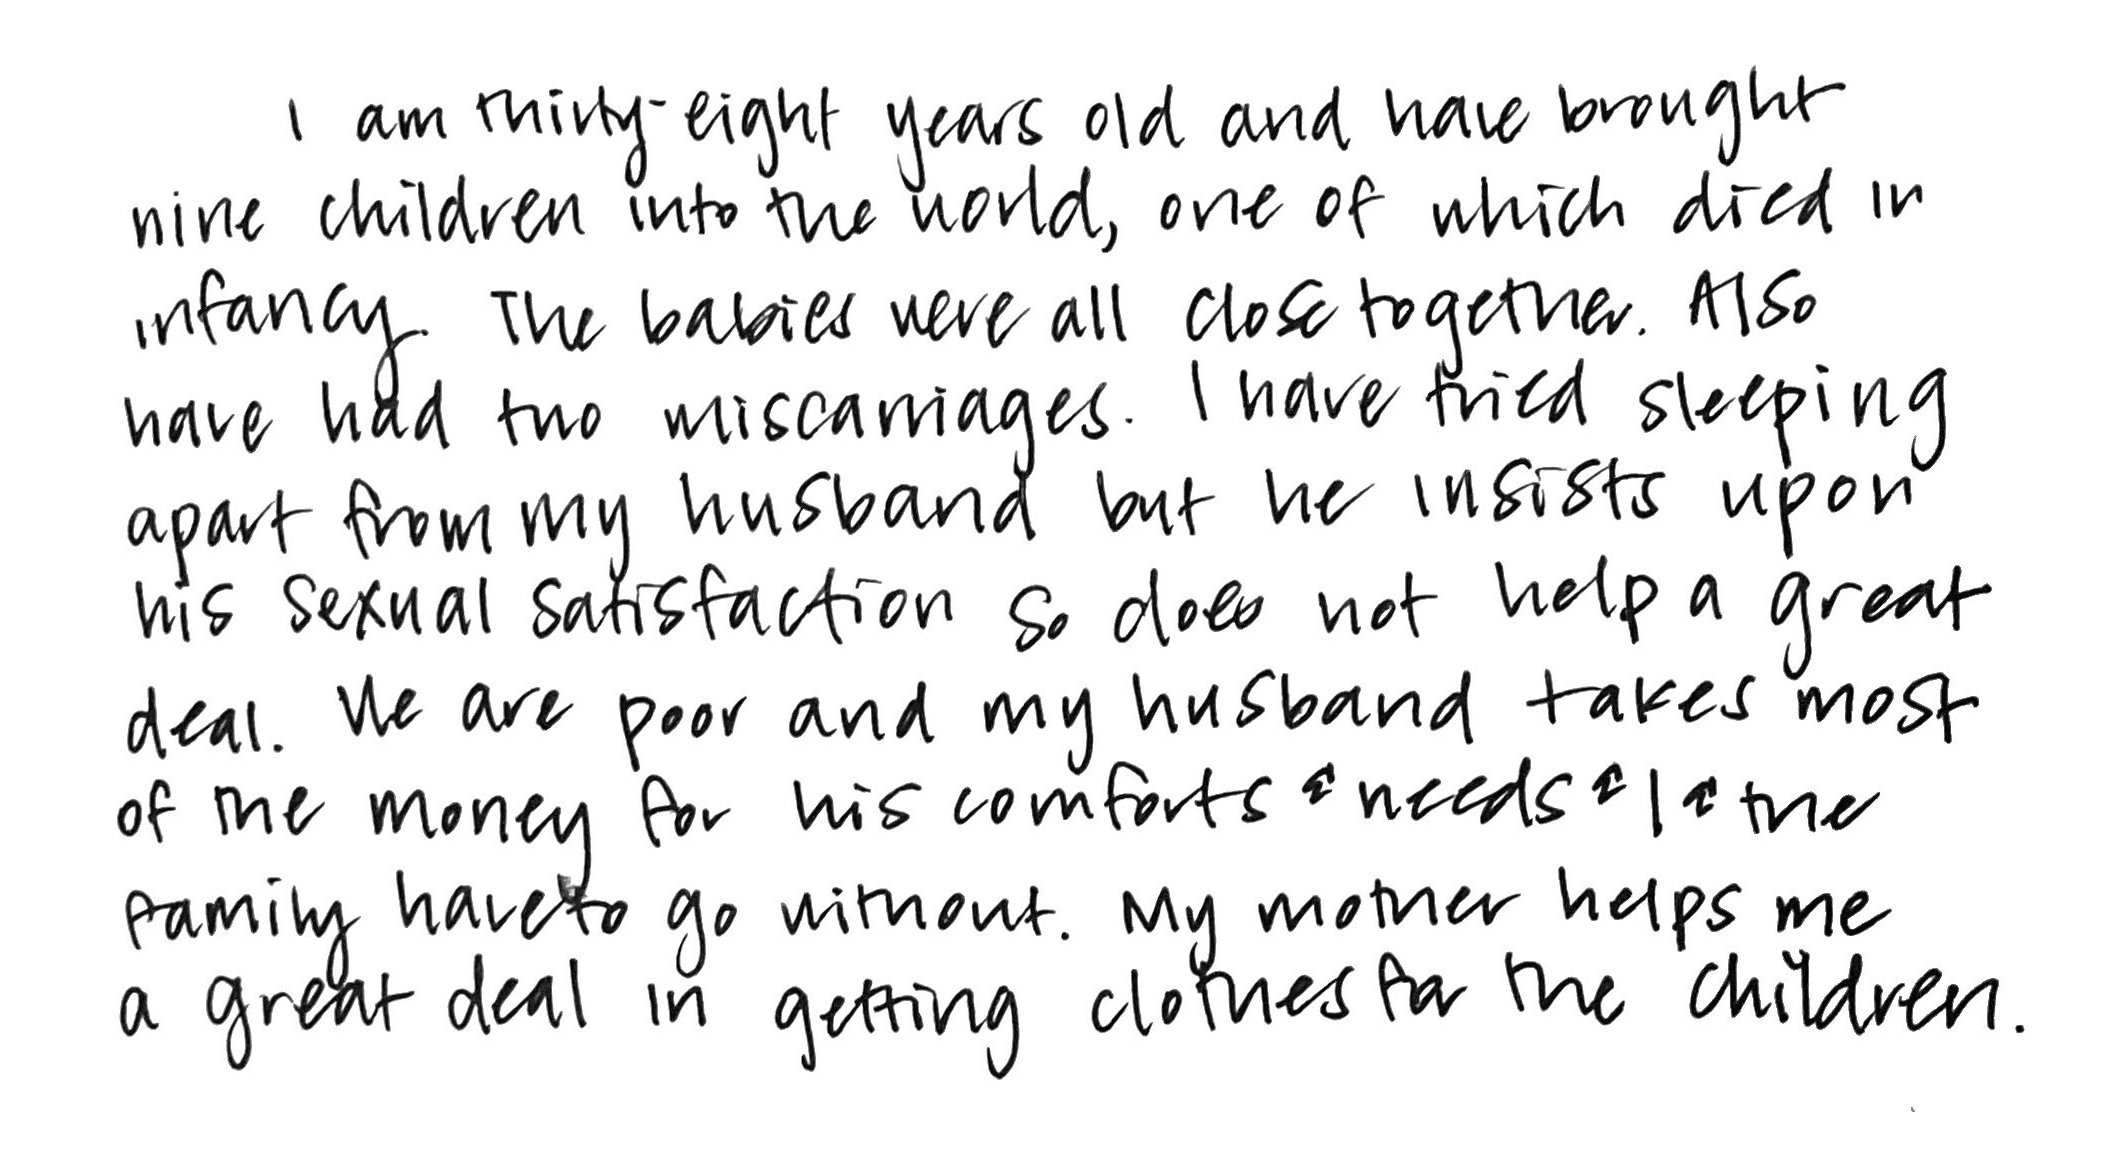 I am thirty-eight years old and have brought
nine children into the world, one of which died in
infancy. The babies were all close together. Also
have had two miscarriages. I have tried sleeping
apart from my husband but he insists upon
his sexual satisfaction so does not help a great
deal. We are poor and my husband takes most
of the money for his comforts & needs & I & the
family have to go without. My mother helps me
a great deal in getting clothes for the children.